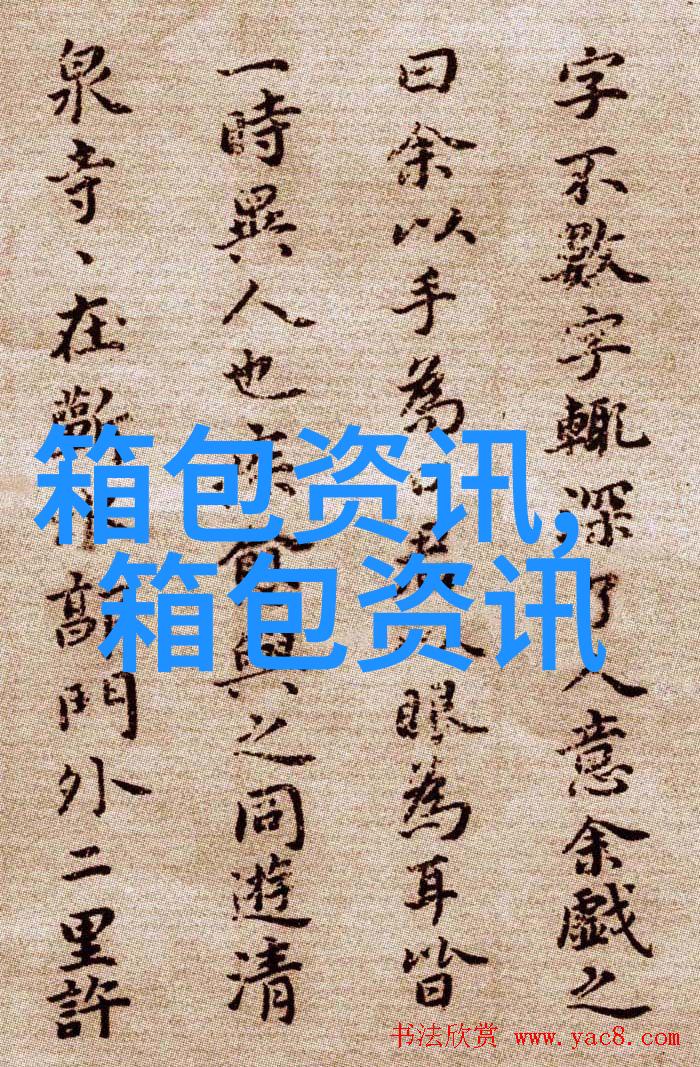 字不數字輒深了人意余戲之
曰余以手為口君以眼為耳皆
一時異人也疾愈與之同遊清
泉寺、在蘄水郭門外二里許
箱包资讯,
箱包资讯
书法欣赏 www.yac8.com